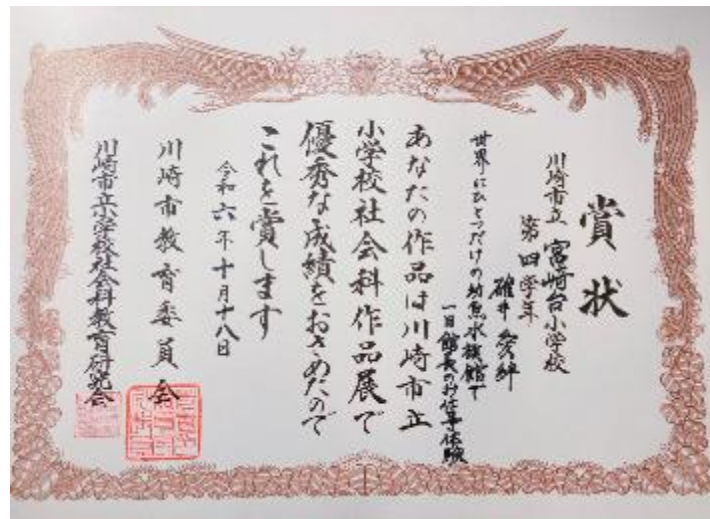 賞状
川崎市立 宮崎台小学校
第四学年
碓井 愛絆
世界にひとつだけの幼魚水族館で
一日館長のお仕事体験
あなたの作品は川崎市立
小学校社会科作品展で
優秀な成績をおさめたので
これを賞します
令和六年十月十八日
川崎市教育委員会
川崎市立小学校社会科教育研究会